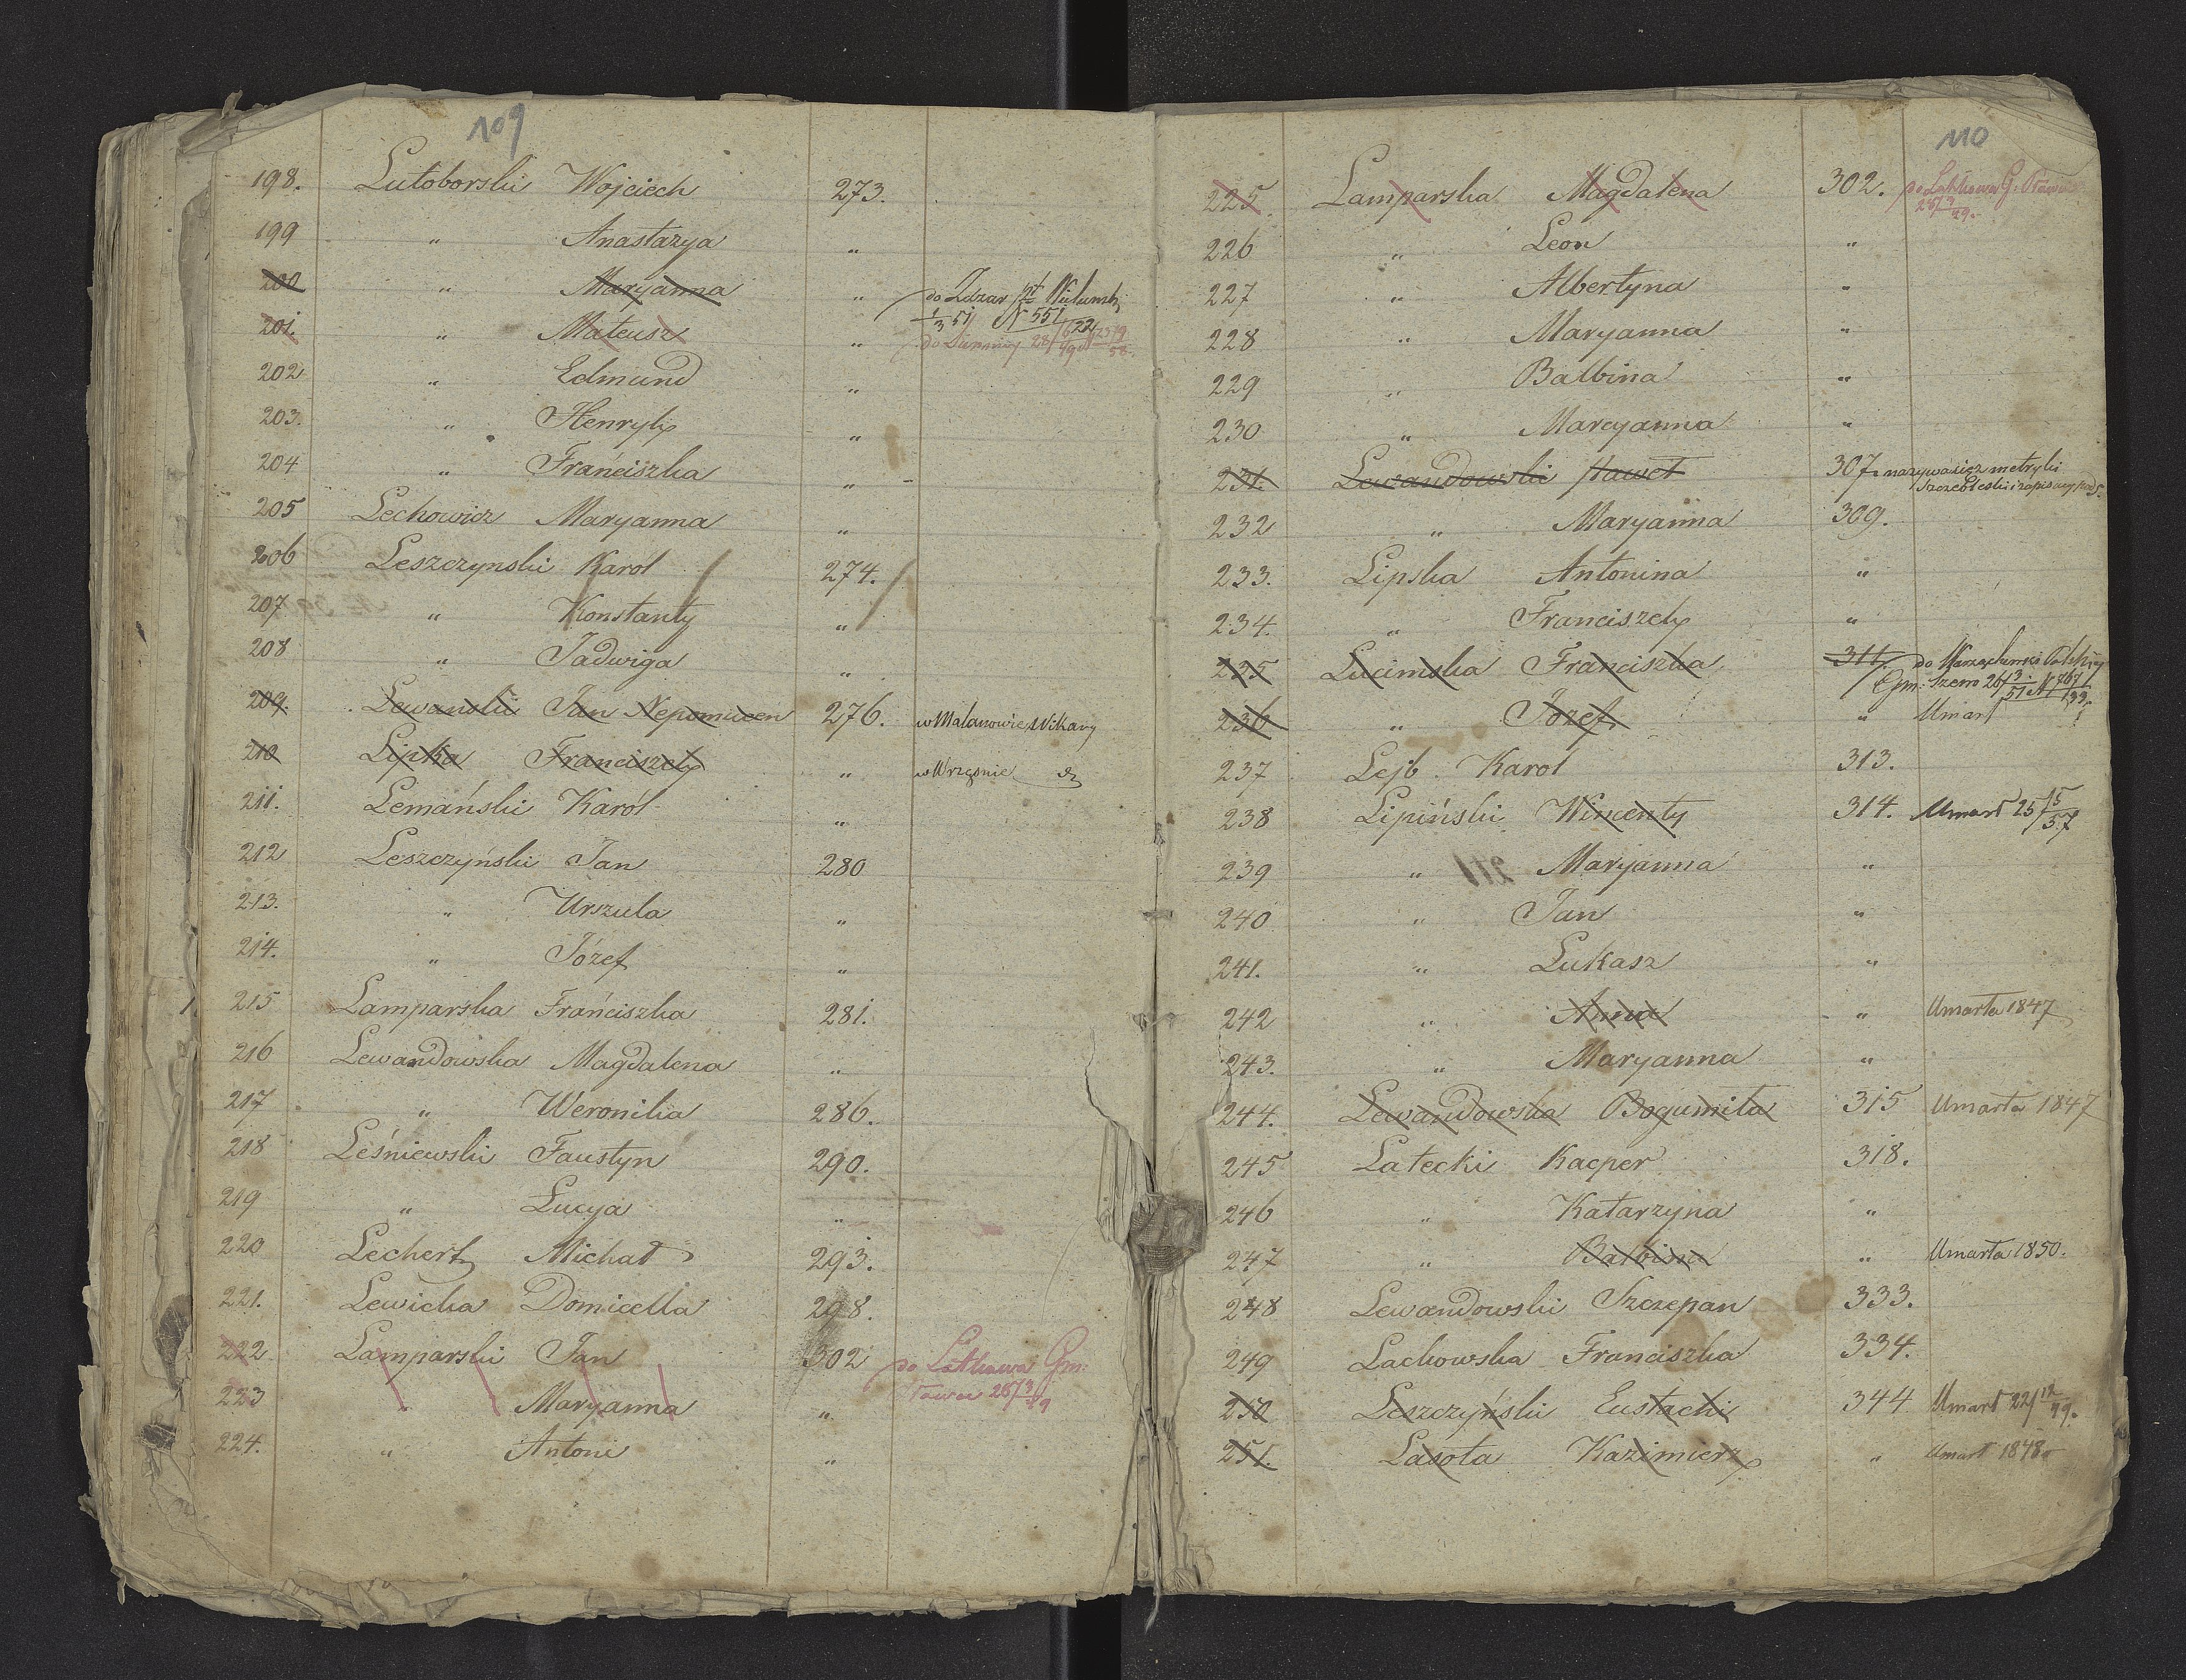 109
198. Lutoborski Wojciech 273.
199 " Anastazya "
200 " Maryanna " do Zdzar pt Wielunski
1/3 51 N 551/622
201. " Mateusz "
202 " Edmund "
203. " Henryk "
204 " Franciszka "
205 Lechowicz Maryanna "
206 Leszczynski Karol 274.
207 " Konstanty "
208 " Jadwiga "
209. Lewanski Jan Nepomucen 276. w Malanowie Wikary
210 Lipka Franciszek " w Wrzęsnie
211. Lemański Karól "
212 Leszczyński Jan 280
213. " Urszula "
214. " Józef "
215 Lamparska Franciszka 281.
216 Lewandowska Magdalena "
217 " Weronika 286.
218 Leśniewski Faustyn 290.
219 " Łucya "
220 Lechert Michał 293.
221. Lewicka Domicella 298.
222 Lamparski Jan 302 do Latkowa Gm:
223 " Maryanna "
224. " Antoni "
110
225. Lamparska Magdalena 302. do Latkowa G.
226 " Leon "
227 " Albertyna "
228 " Maryanna "
229 " Balbina "
230 " Marcyanna "
231. Lewandowski Paweł 307. nazywa się z metryki
232 " Maryanna 309.
233. Lipska Antonina "
234. " Franciszek "
235 Lucimska Franciszka 311. do
236 " Józef " Umarł
237 Lejb Karol 313.
238 Lipiński Wincenty 314. Umarł 25/15/57
239 " Maryanna "
240 " Jan "
241. " Łukasz "
242 " Anna " Umarła 1847
243. " Maryanna "
244. Lewandowska Bogumiła 315 Umarła 1847
245 Łatecki Kacper 318.
246 " Katarzyna "
247 " Balbina " Umarła 1850.
248 Lewandowski Szczepan 333.
249 Lachowska Franciszka 334.
250 Leszczyński Eustachi 344 Umarł 22/12/49.
251. Lasota Kazimierz " Umarł 1848